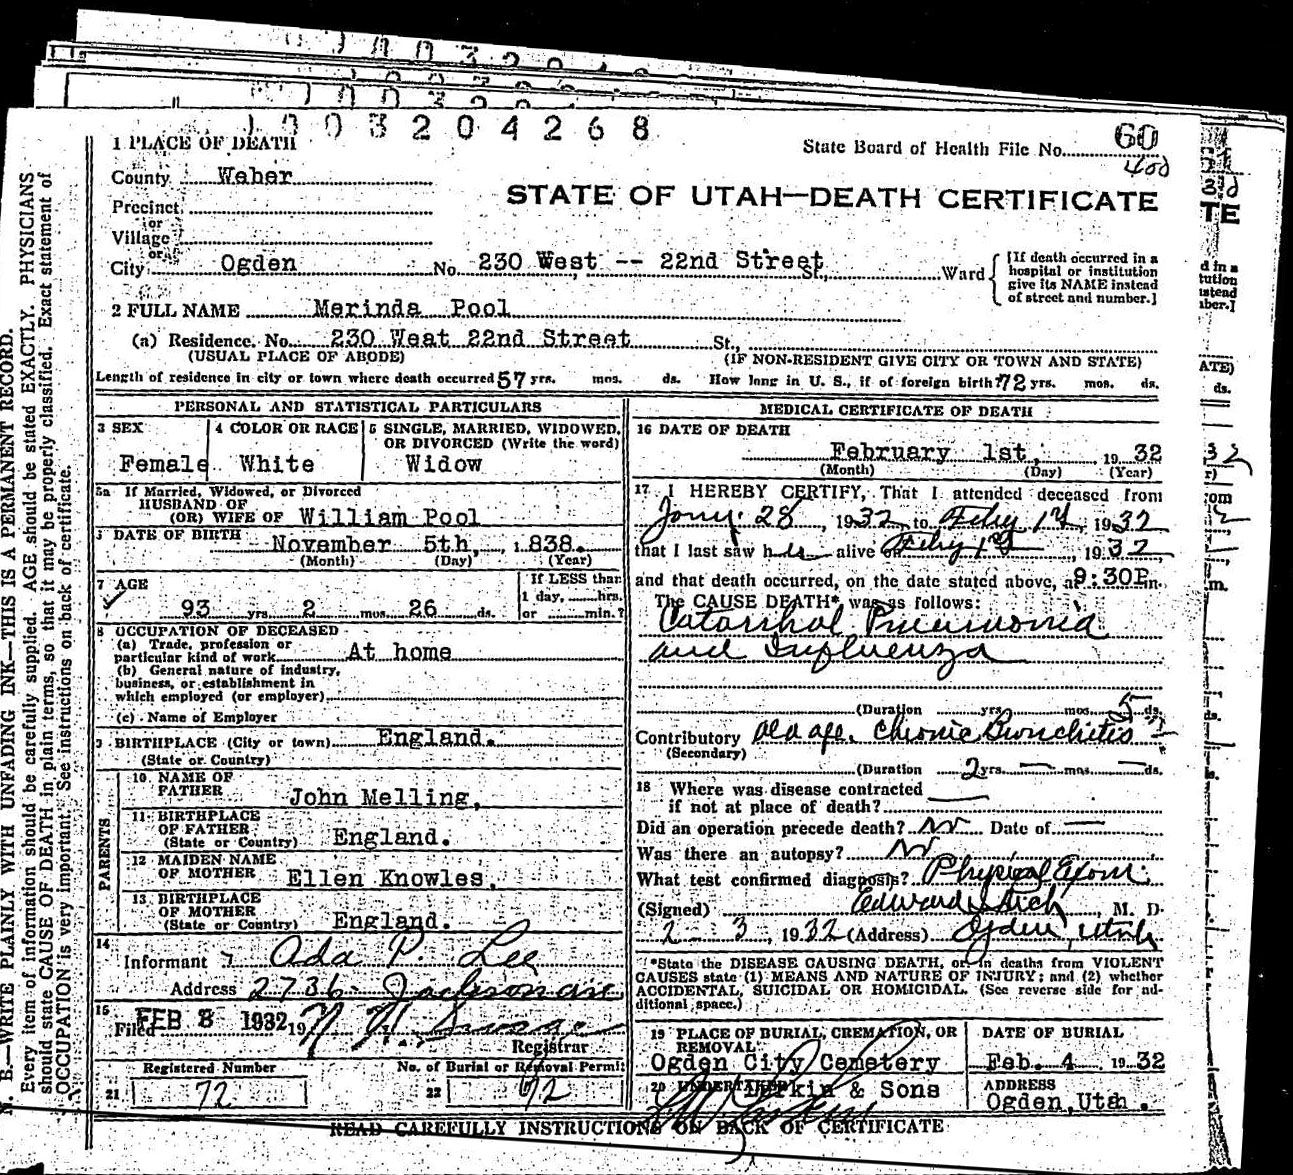 1003204268
1 PLACE OF DEATH
State Board of Health File No. 60
400
County Weber
STATE OF UTAH—DEATH CERTIFICATE
Precinct
or
Village
or
City Ogden No. 230 West -- 22nd Street St., Ward
[If death occurred in a hospital or institution give its NAME instead of street and number.]
2 FULL NAME Merinda Pool
(a) Residence. No. 230 West 22nd Street St.,
(USUAL PLACE OF ABODE) (IF NON-RESIDENT GIVE CITY OR TOWN AND STATE)
Length of residence in city or town where death occurred 57 yrs. mos. ds. How long in U. S., if of foreign birth? 72 yrs. mos. ds.
PERSONAL AND STATISTICAL PARTICULARS
3 SEX 4 COLOR OR RACE 5 SINGLE, MARRIED, WIDOWED, OR DIVORCED (Write the word)
Female White Widow
5a If Married, Widowed, or Divorced
HUSBAND OF
(OR) WIFE OF William Pool
DATE OF BIRTH November 5th, 1838.
(Month) (Day) (Year)
7 AGE
If LESS than
1 day, hrs.
93 yrs. 2 mos. 26 ds. or min.?
8 OCCUPATION OF DECEASED
(a) Trade, profession or
particular kind of work At home
(b) General nature of industry,
business, or establishment in
which employed (or employer)
(c) Name of Employer
9 BIRTHPLACE (City or town) England.
(State or Country)
PARENTS
10 NAME OF
FATHER John Melling,
11 BIRTHPLACE
OF FATHER
(State or Country) England.
12 MAIDEN NAME
OF MOTHER Ellen Knowles,
13 BIRTHPLACE
OF MOTHER
(State or Country) England.
14
Informant Ada P. Lee
Address 2736 Jackson ave
15
Filed FEB 3 1932 19
Registrar
Registered Number No. of Burial or Removal Permit
21 72 22 72
MEDICAL CERTIFICATE OF DEATH
16 DATE OF DEATH
February 1st, 1932
(Month) (Day) (Year)
17 I HEREBY CERTIFY, That I attended deceased from
Jany. 28, 1932, to Feby 1st, 1932
that I last saw her alive on Feby 1st, 1932,
and that death occurred, on the date stated above, at 9:30P m.
The CAUSE DEATH* was as follows:
Catarrhal Pneumonia
and Influenza
(Duration yrs. mos. 5 ds.
Contributory Old age. Chronic Bronchitis
(Secondary)
(Duration 2 yrs. — mos. — ds.
18 Where was disease contracted
if not at place of death?
Did an operation precede death? No Date of —
Was there an autopsy? No
What test confirmed diagnosis? Physical Exam
(Signed) Edward I. Rich, M. D.
2 - 3, 1932 (Address) Ogden, Utah
*State the DISEASE CAUSING DEATH, or in deaths from VIOLENT
CAUSES state (1) MEANS AND NATURE OF INJURY; and (2) whether
ACCIDENTAL, SUICIDAL OR HOMICIDAL. (See reverse side for ad-
ditional space.)
19 PLACE OF BURIAL, CREMATION, OR REMOVAL DATE OF BURIAL
Ogden City Cemetery Feb. 4 1932
20 UNDERTAKER Larkin & Sons ADDRESS
Ogden, Utah.
READ CAREFULLY INSTRUCTIONS ON BACK OF CERTIFICATE
N. B.—WRITE PLAINLY WITH UNFADING INK—THIS IS A PERMANENT RECORD.
Every item of information should be carefully supplied. AGE should be stated EXACTLY. PHYSICIANS
should state CAUSE OF DEATH in plain terms, so that it may be properly classified. Exact statement of
OCCUPATION is very important. See instructions on back of certificate.